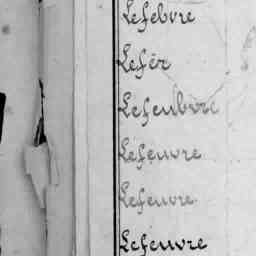 Lefebvre
Lefér
Lefeubvre
Lefeuvre
Lefeuvre
Lefeuvre